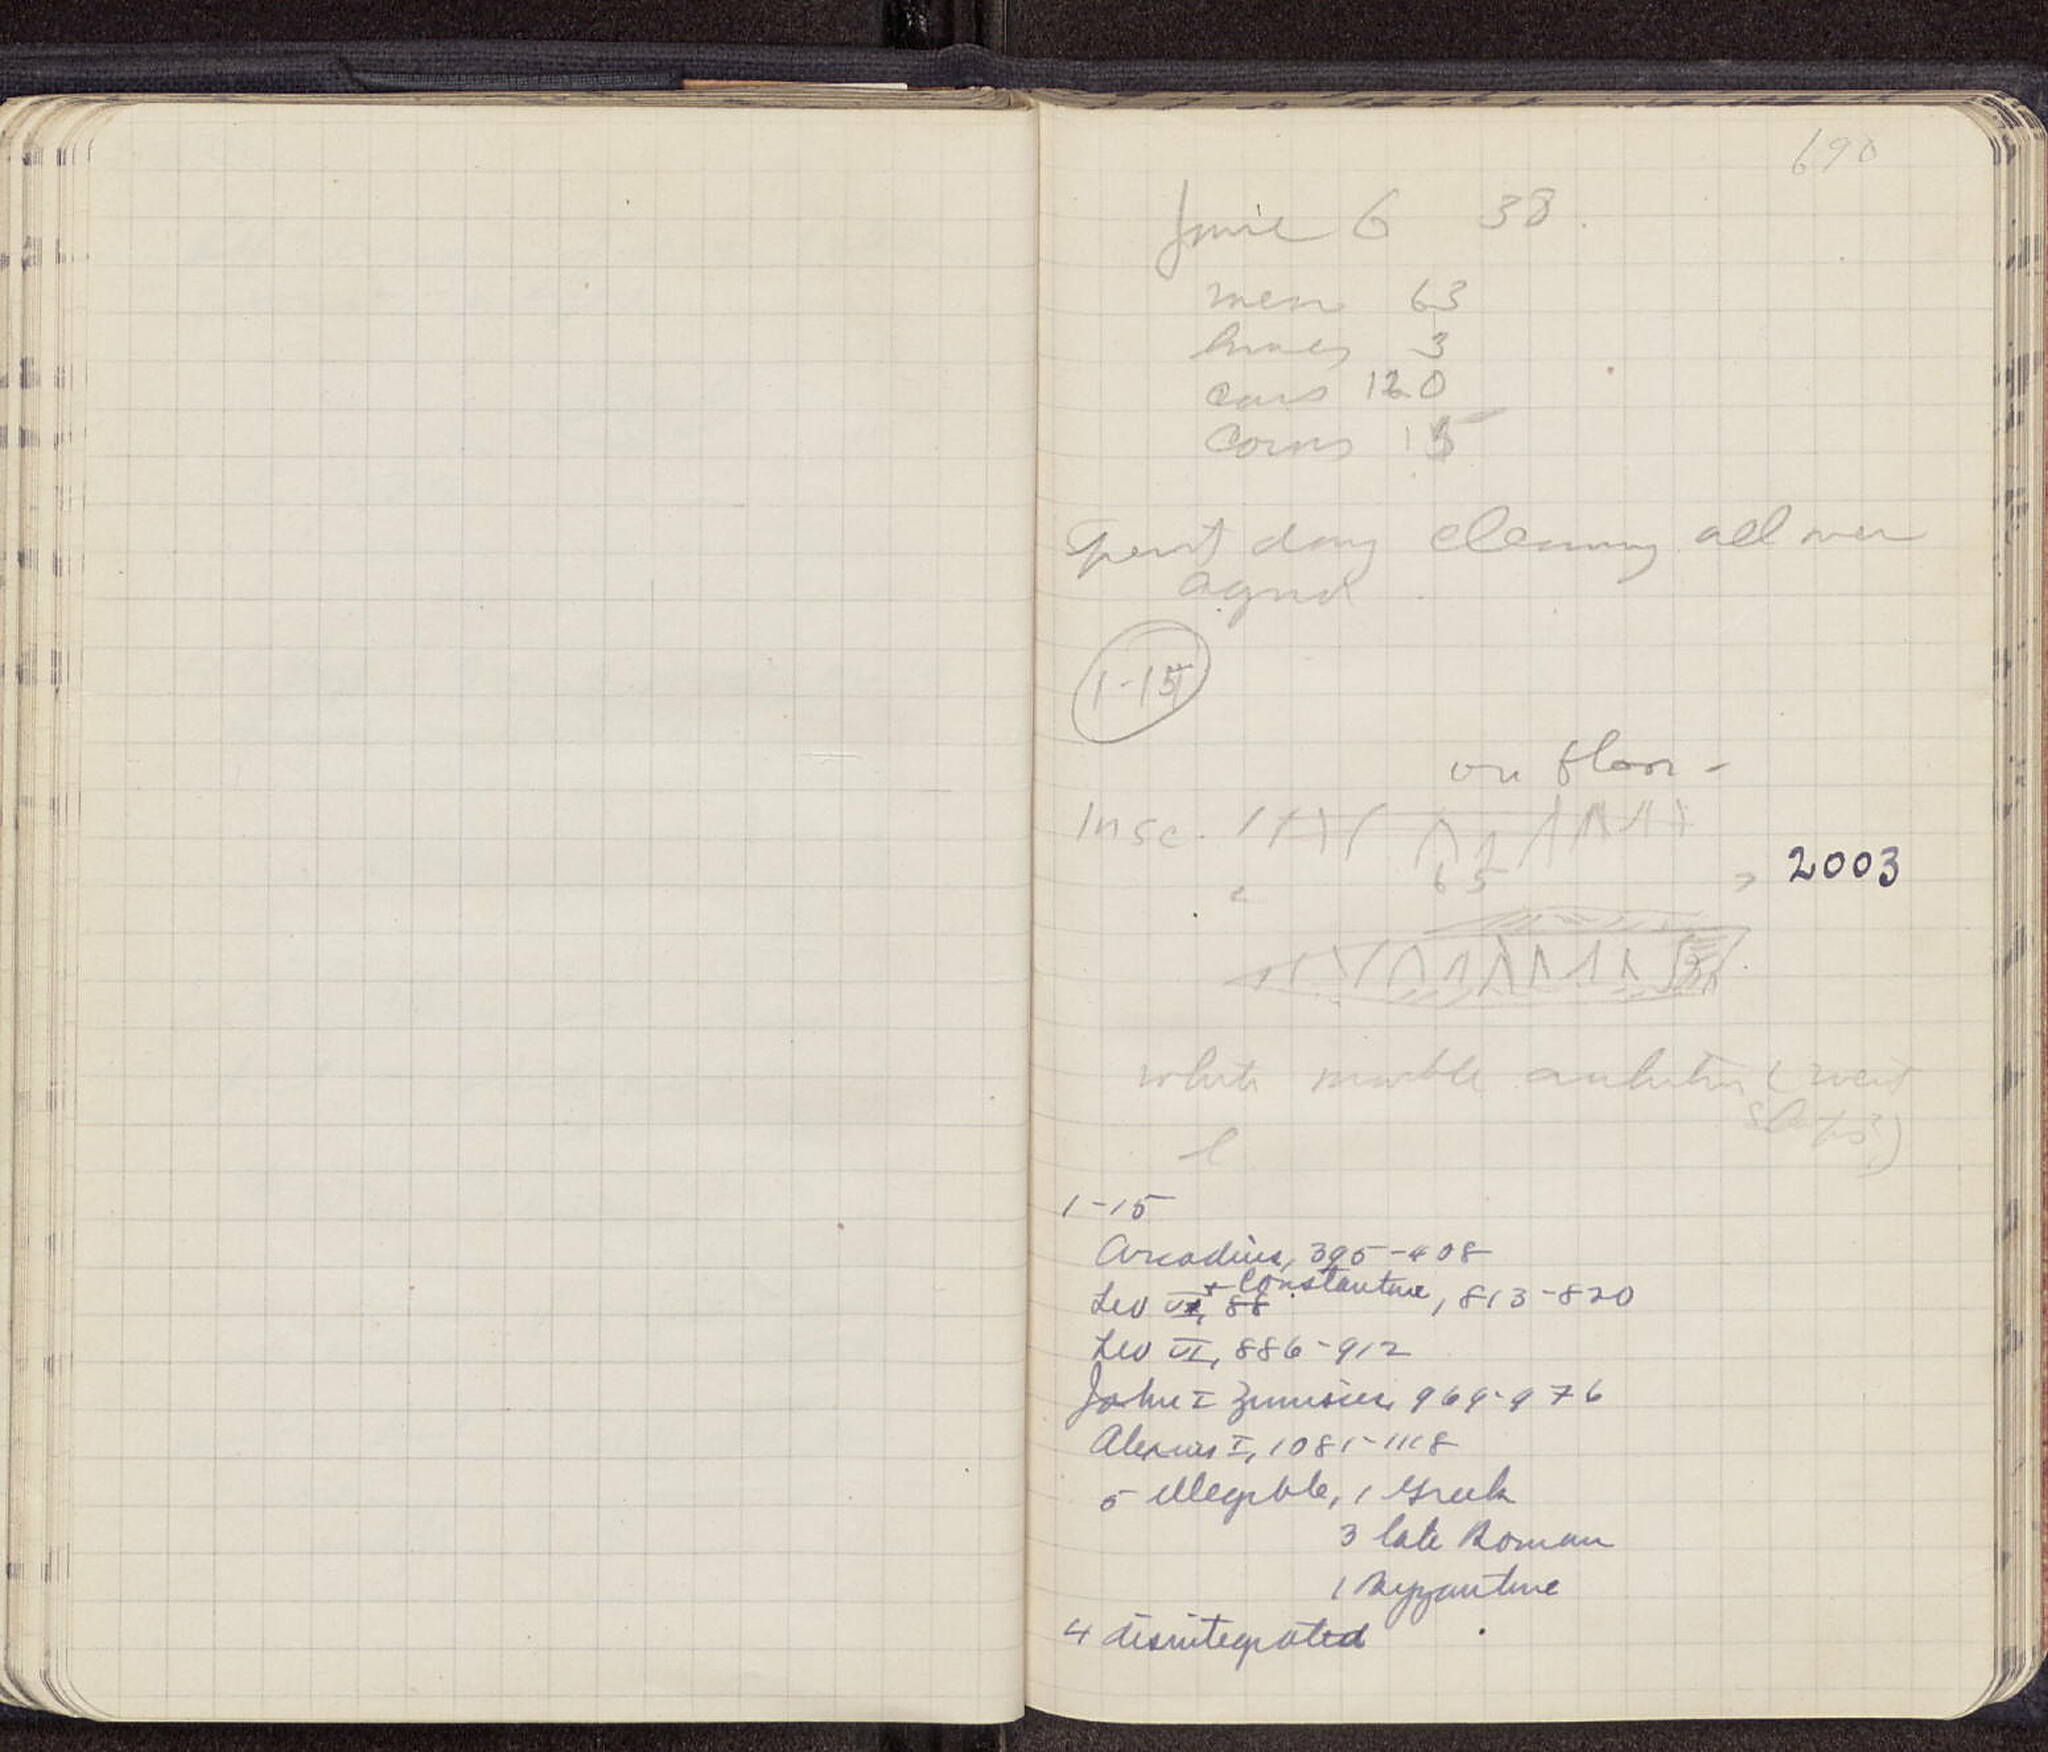 690
June 6 38.
men 63
3
cars 120
Coins 15
Spent day cleaning all over
agora.
1-15
on floor -
Insc.
65
2003
white marble (west
l
1-15
Arcadius, 395-408
Leo V, 88 + Constantine, 813-820
Leo VI, 886-912
John I Zimisces, 969-976
Alexius I, 1081-1118
5 illegible, 1 Greek
3 late Roman
1 Byzantine
4 disintegrated